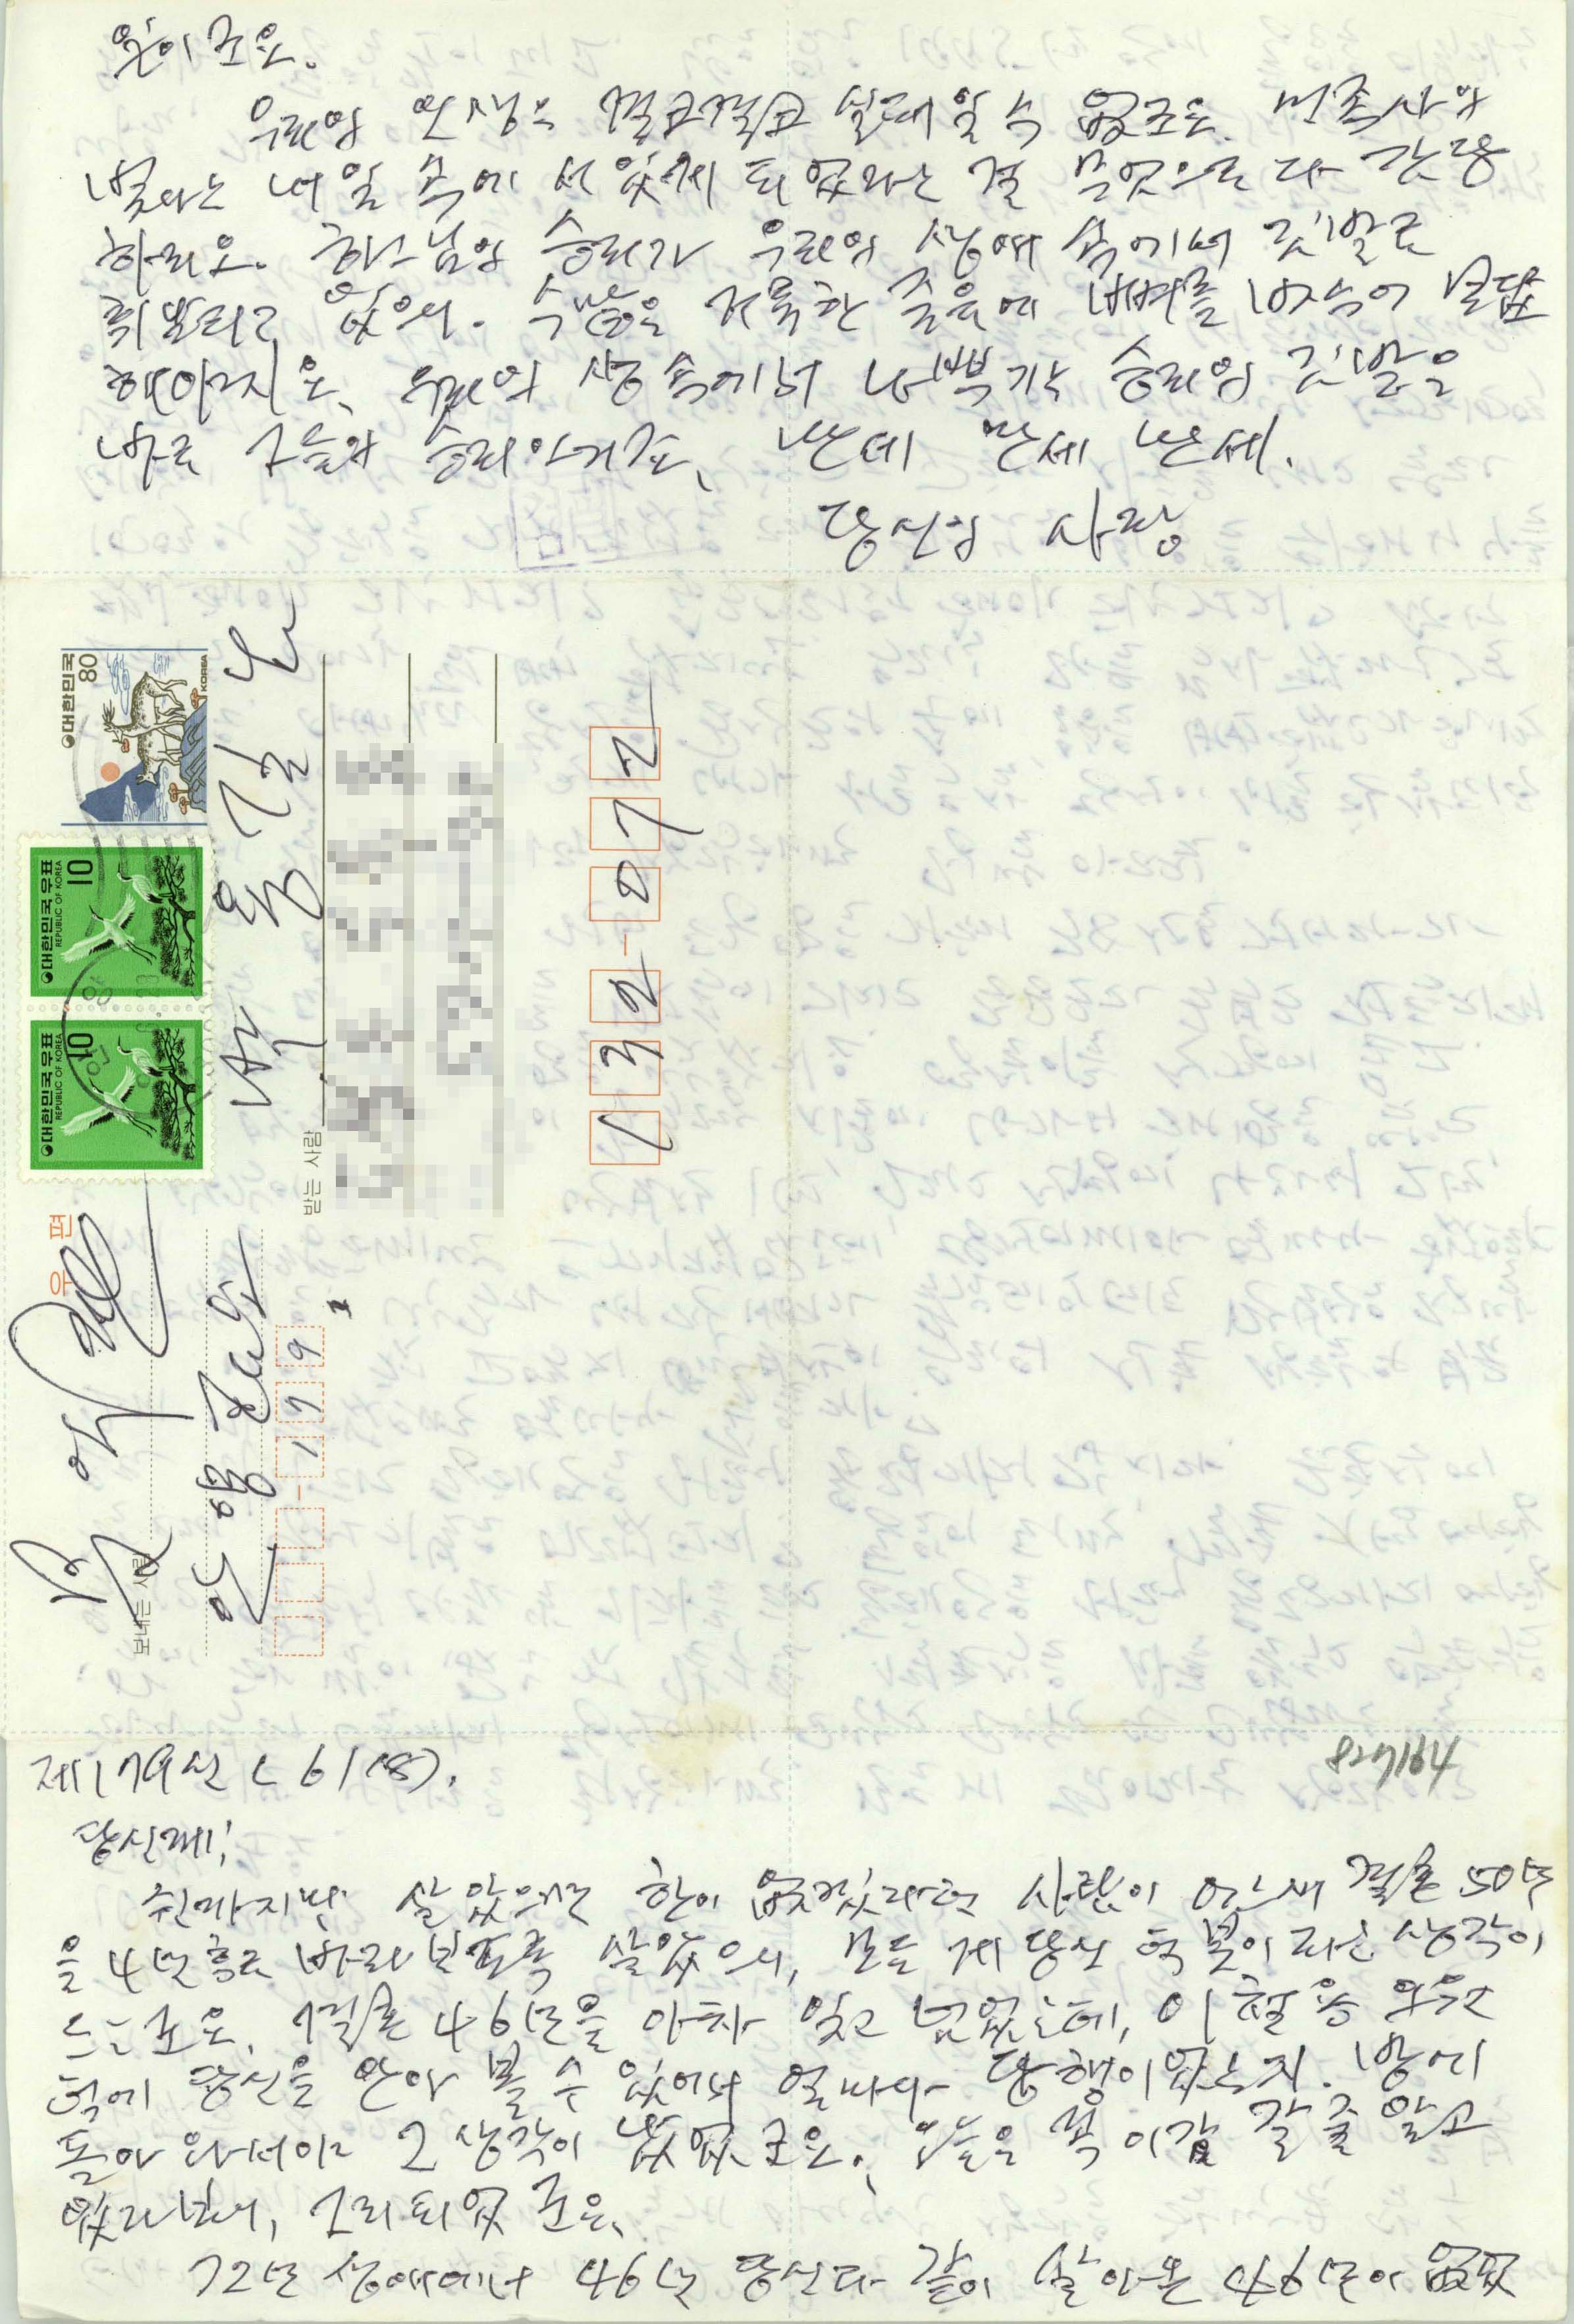 있군요.
우리의 인생은 결코 결코 실패일 수 없군요. 민족사의
빛나는 내일 속에 서 있게 되었다는 걸 무엇으로 다 감당
하리오. 하느님의 승리가 우리의 생애 속에서 깃발로
휘날리고 있으니. 수난은 거룩한
해야지요. 우리의 생 속에서 나부끼는 승리의 깃발은
바로 그들의 승리인거죠. 만세 만세 만세.
당신의 사랑
대한민국 80 KOREA
대한민국우표 10 REPUBLIC OF KOREA
대한민국우표 10 REPUBLIC OF KOREA
우편
보내는 사람
문익환
안양 교도소
179
받는 사람
박용길
132-072
제179신 ㄷ 61(18).
827164
당신께!
쉰까지만 살았으면 한이 없겠다던 사람이 어느새 결혼 50년
을 4년 후로 바라보도록 살았으니, 모든 게 당신 덕분이라는 생각이
드는군요. 결혼 46년을 아차 잊고 있었는데, 이철용 의원
덕에 당신을 안아 볼 수 있어서 얼마나 다행이었는지. 방에
돌아 와서야 그 생각이 났었군요. 오늘은 꼭 이감 갈 줄 알고
있다보니, 그리 되었군요.
72년 생애에서 46년 당신과 같이 살아온 46년이 없었